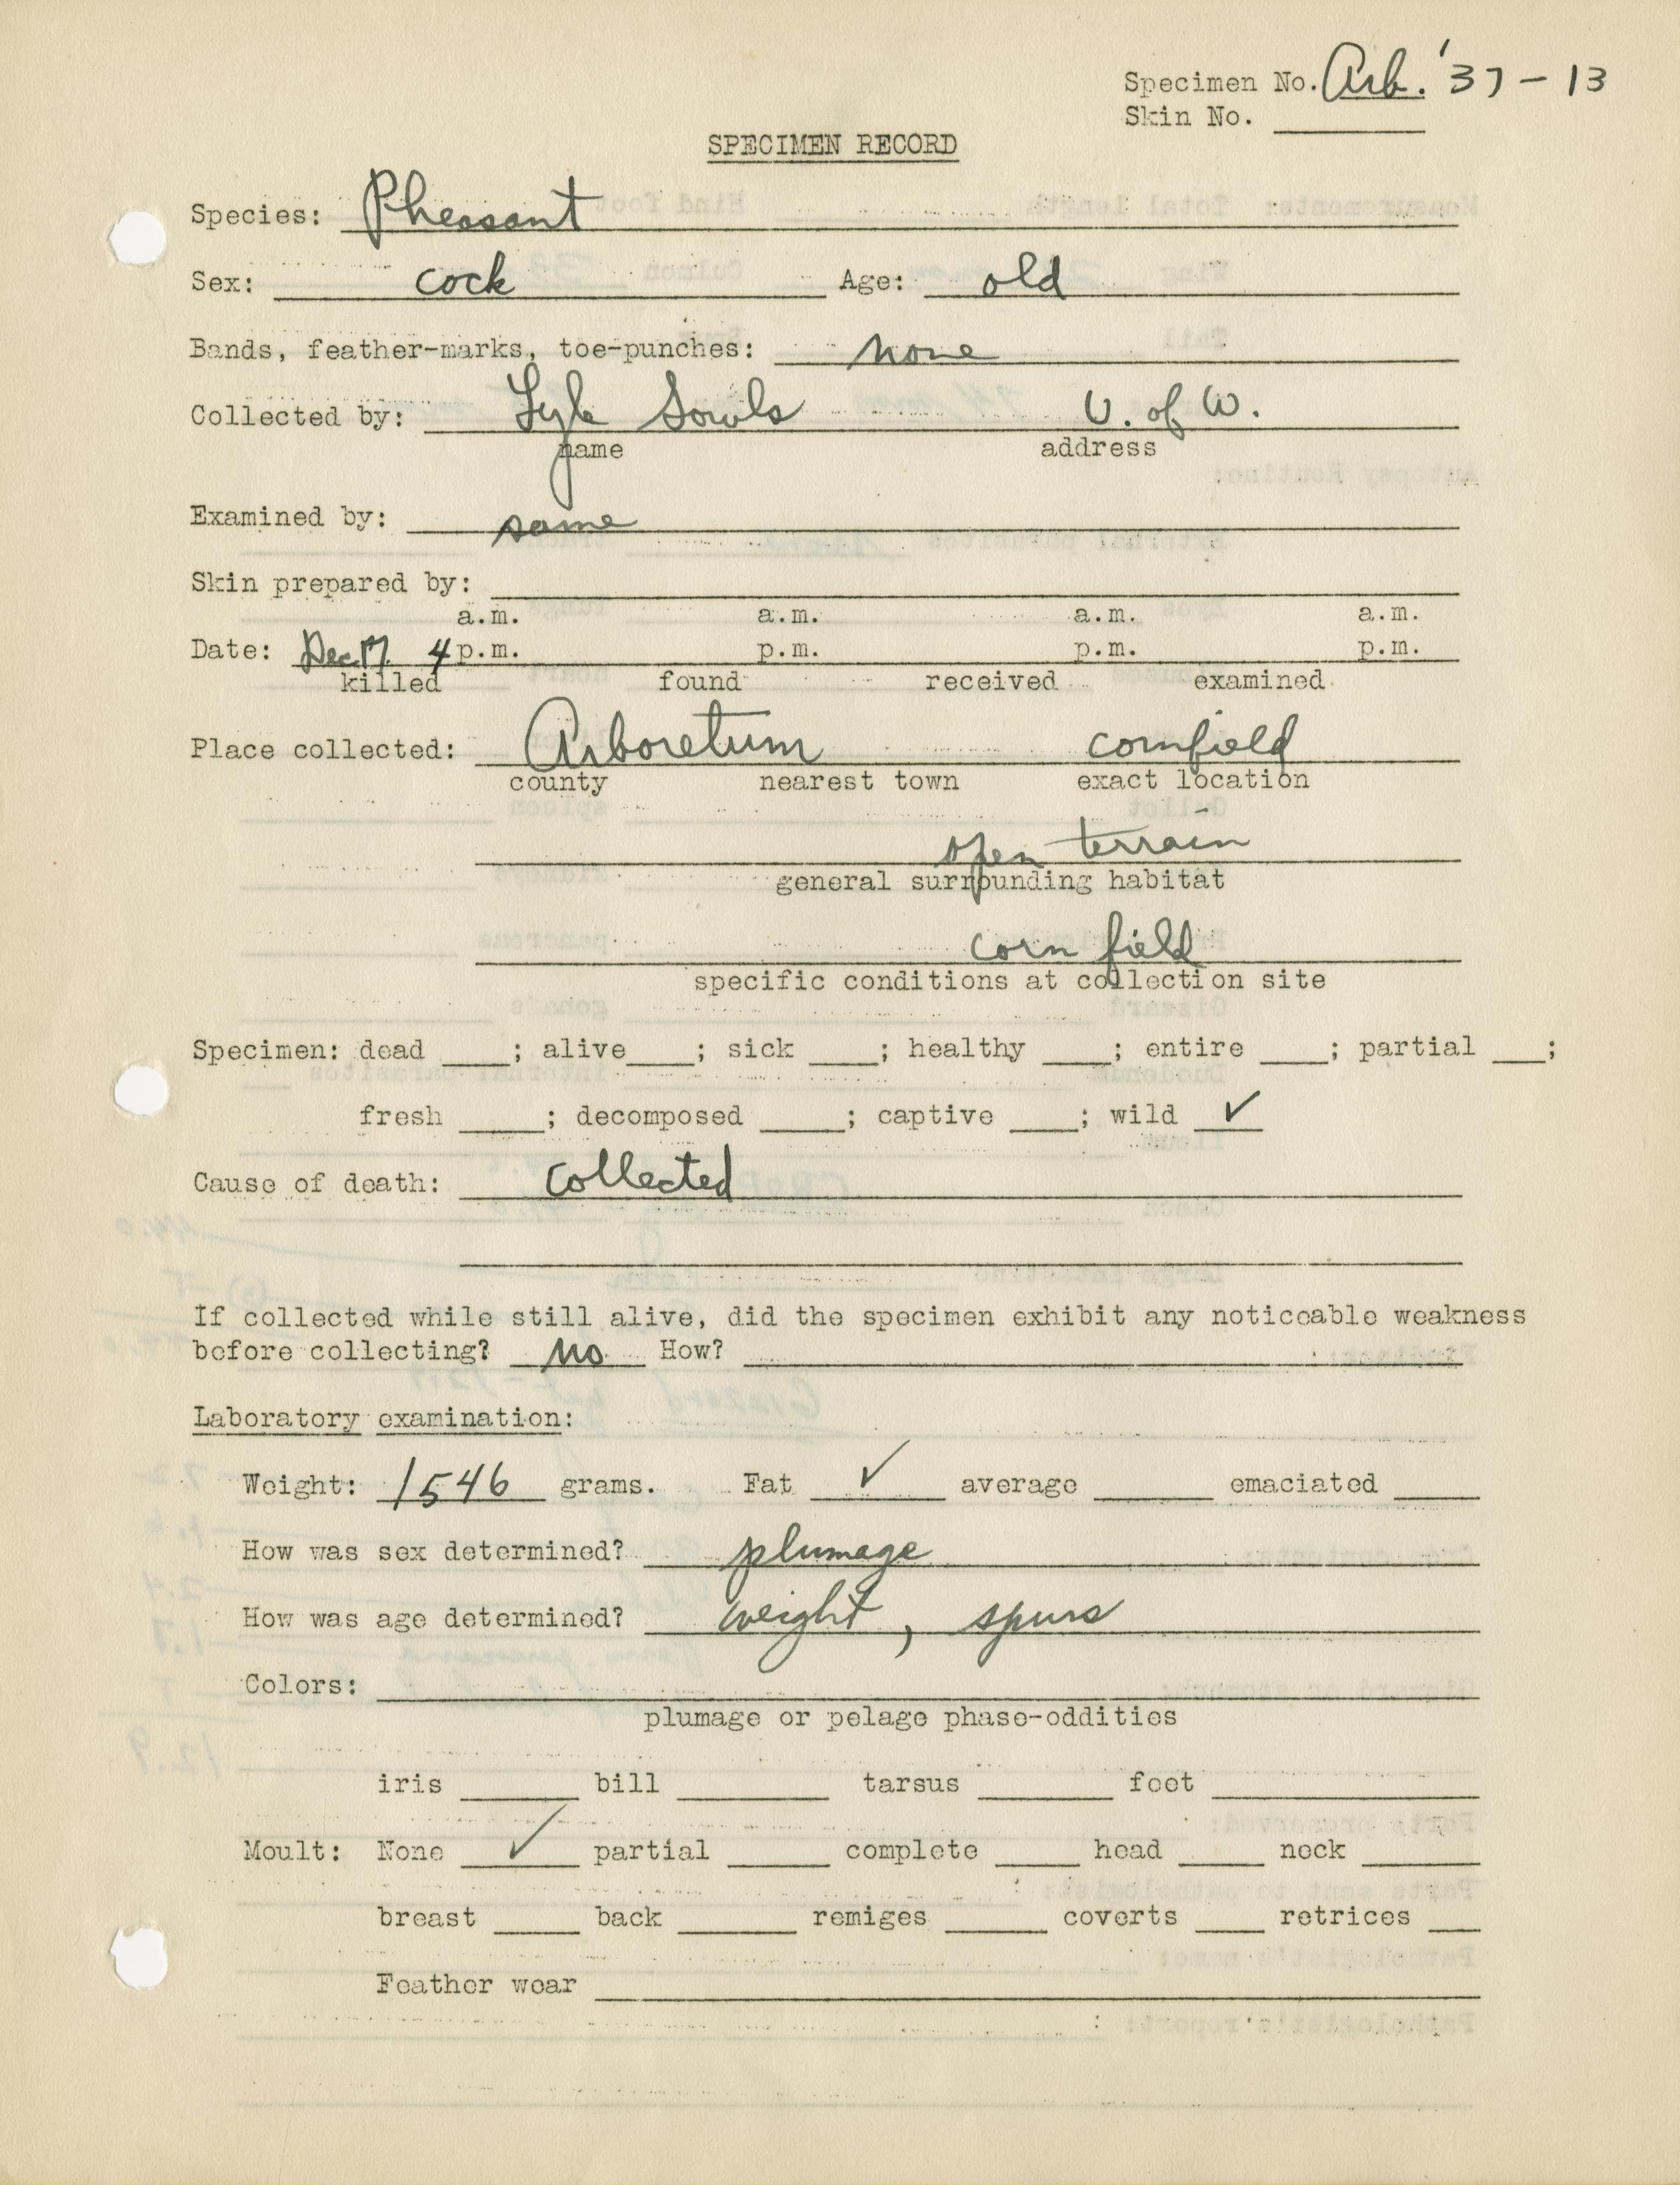 Specimen No. Arb. '37-13
Skin No. ____
SPECIMEN RECORD
Species: Pheasant
Sex: cock Age: old
Bands, feather-marks, toe-punches: none
Collected by: Lyle Sowls U. of W.
name address
Examined by: same
Skin prepared by:
a.m. a.m. a.m. a.m.
Date: Dec 17 4 p.m. p.m. p.m. p.m.
killed found received examined
Place collected: Arboretum cornfield
county nearest town exact location
open terrain
general surrounding habitat
corn field
specific conditions at collection site
Specimen: dead ____; alive ____; sick ____; healthy ____; entire ____; partial ___;
fresh ____; decomposed ____; captive ____; wild ✓
Cause of death: collected
If collected while still alive, did the specimen exhibit any noticeable weakness
before collecting? no How?
Laboratory examination:
Weight: 1546 grams. Fat ✓ average ____ emaciated ____
How was sex determined? plumage
How was age determined? weight, spurs
Colors:
plumage or pelage phase-oddities
iris ____ bill ____ tarsus ____ foot ____
Moult: None ✓ partial ____ complete ____ head ____ neck ____
breast ____ back ____ remiges ____ coverts ____ retrices ____
Feather wear